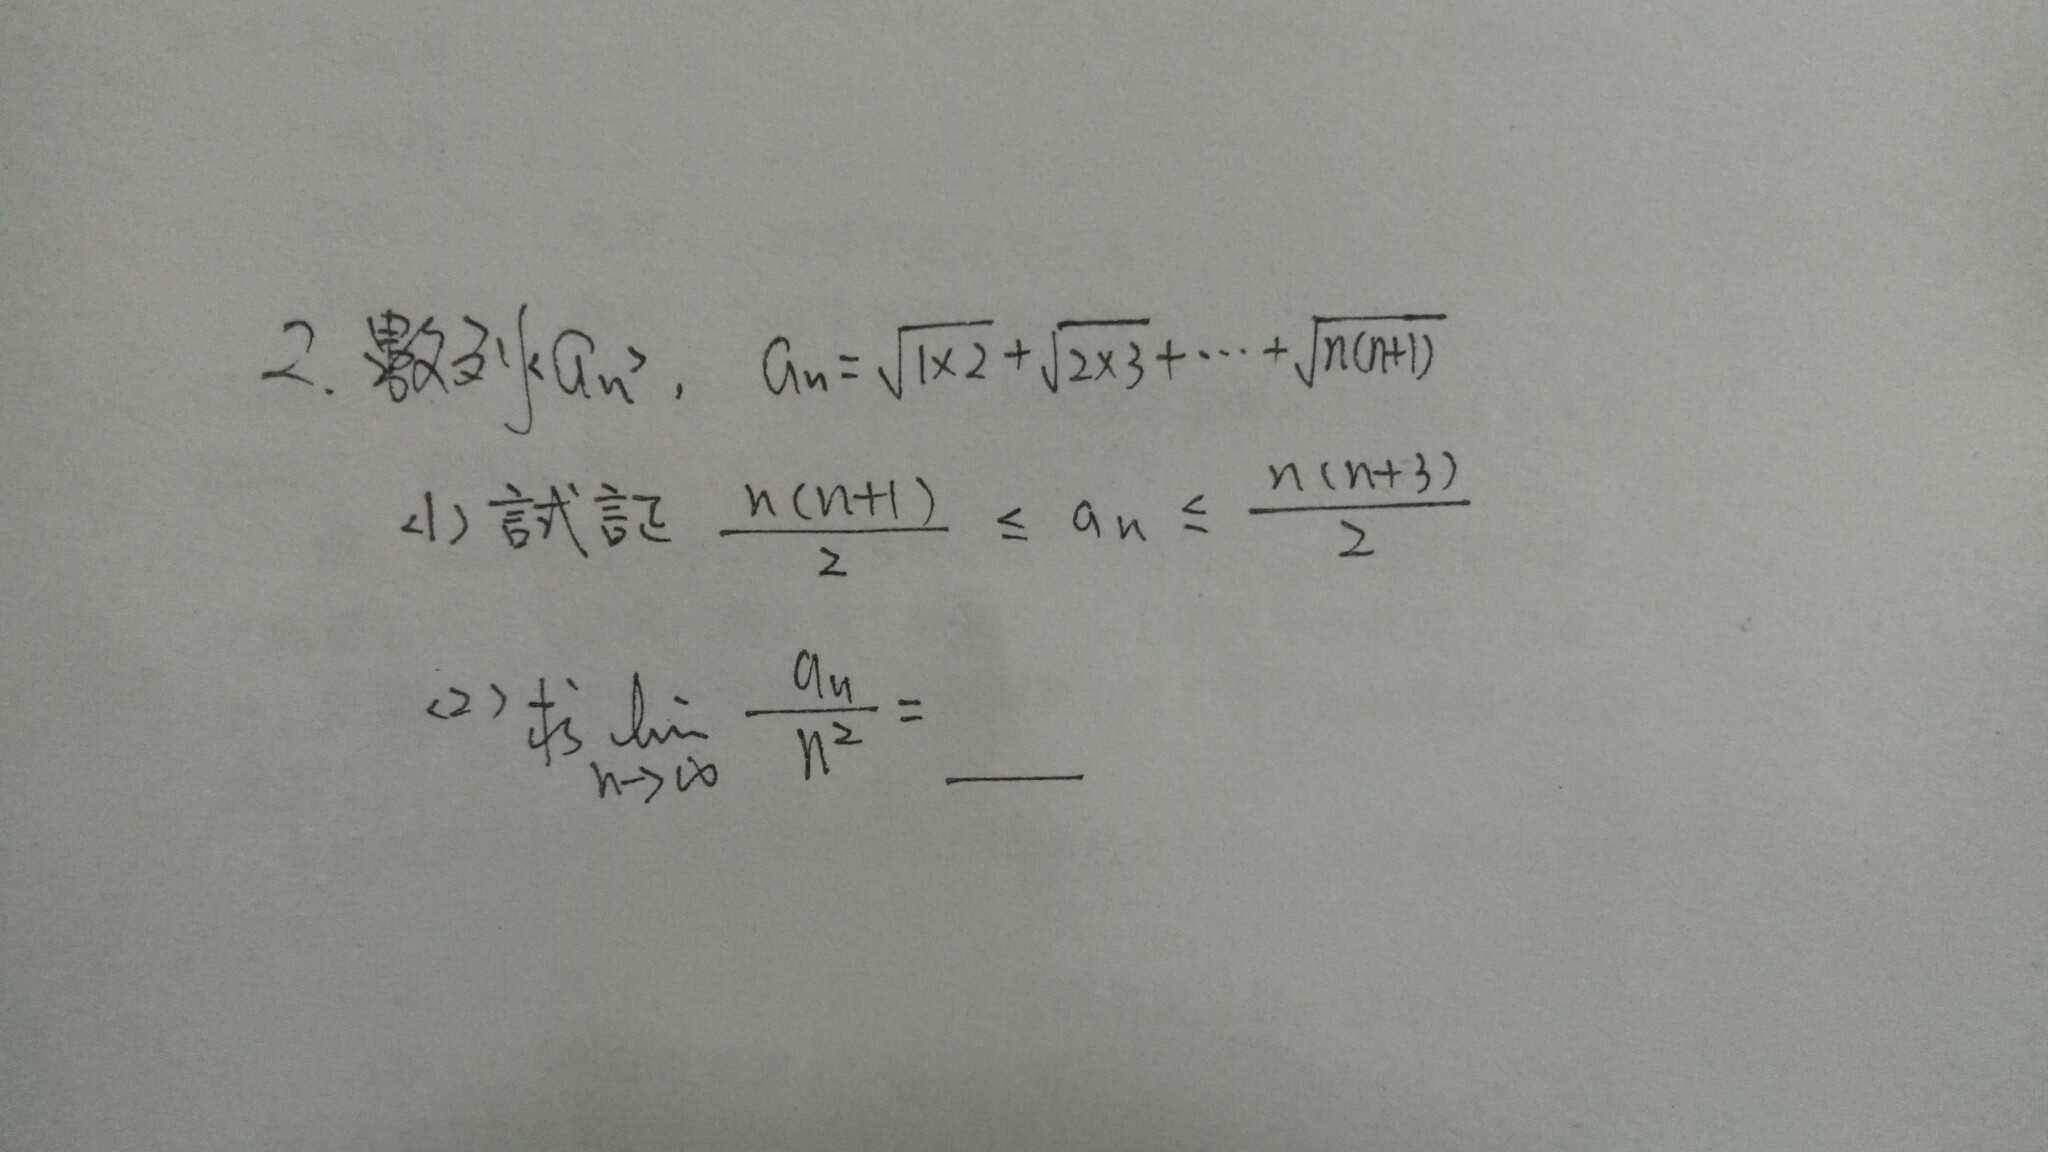 2. 數列<an>, an=√1×2+√2×3+⋯+√n(n+1)
<1> 試証 n(n+1)/2 ≤ an ≤ n(n+3)/2
<2> 求 lim n→∞ an/n² = ___